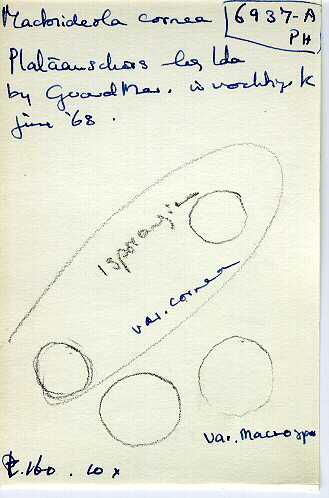 Macbrideola cornea
6937-A
PH
Plataanschors leg Ida
by Mar. in vochtige k
june '68.
1 sporangium
var. cornea
var. macrospo
160. 10 x